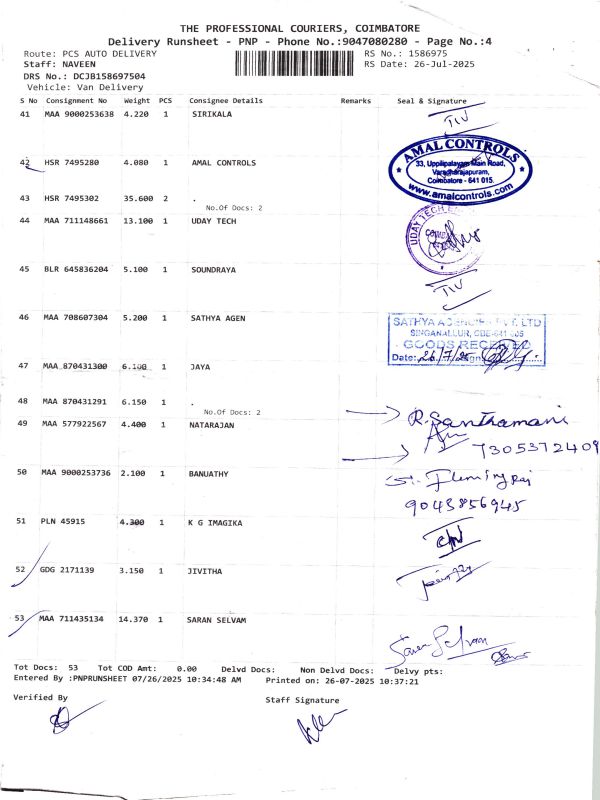 THE PROFESSIONAL COURIERS, COIMBATORE
Delivery Runsheet - PNP - Phone No.:9047080280 - Page No.:4
Route: PCS AUTO DELIVERY RS No.: 1586975
Staff: NAVEEN RS Date: 26-Jul-2025
DRS No.: DCJB158697504
Vehicle: Van Delivery
S No Consignment No Weight PCS Consignee Details Remarks Seal & Signature
41 MAA 9000253638 4.220 1 SIRIKALA
TIV
42 HSR 7495280 4.080 1 AMAL CONTROLS
AMAL CONTROLS
33, Uppilipalayam Main Road,
Varadharajapuram,
Coimbatore - 641 015.
www.amalcontrols.com
43 HSR 7495302 35.600 2 .
No.Of Docs: 2
44 MAA 711148661 13.100 1 UDAY TECH
UDAY TECH
45 BLR 645836204 5.100 1 SOUNDRAYA
TIV
46 MAA 708607304 5.200 1 SATHYA AGEN
SATHYA LTD
SINGANALLUR, CBE-641 005
GOODS RECEIVED
Date: 26/7/25
47 MAA 870431300 6.100 1 JAYA
48 MAA 870431291 6.150 1 .
No.Of Docs: 2
R. Santhamani
49 MAA 577922567 4.400 1 NATARAJAN
7305372409
50 MAA 9000253736 2.100 1 BANUATHY
Flemingraj
9043856945
51 PLN 45915 4.300 1 K G IMAGIKA
52 GDG 2171139 3.150 1 JIVITHA
53 MAA 711435134 14.370 1 SARAN SELVAM
Saran Selvam
Tot Docs: 53 Tot COD Amt: 0.00 Delvd Docs: Non Delvd Docs: Delvy pts:
Entered By :PNPRUNSHEET 07/26/2025 10:34:48 AM Printed on: 26-07-2025 10:37:21
Verified By Staff Signature